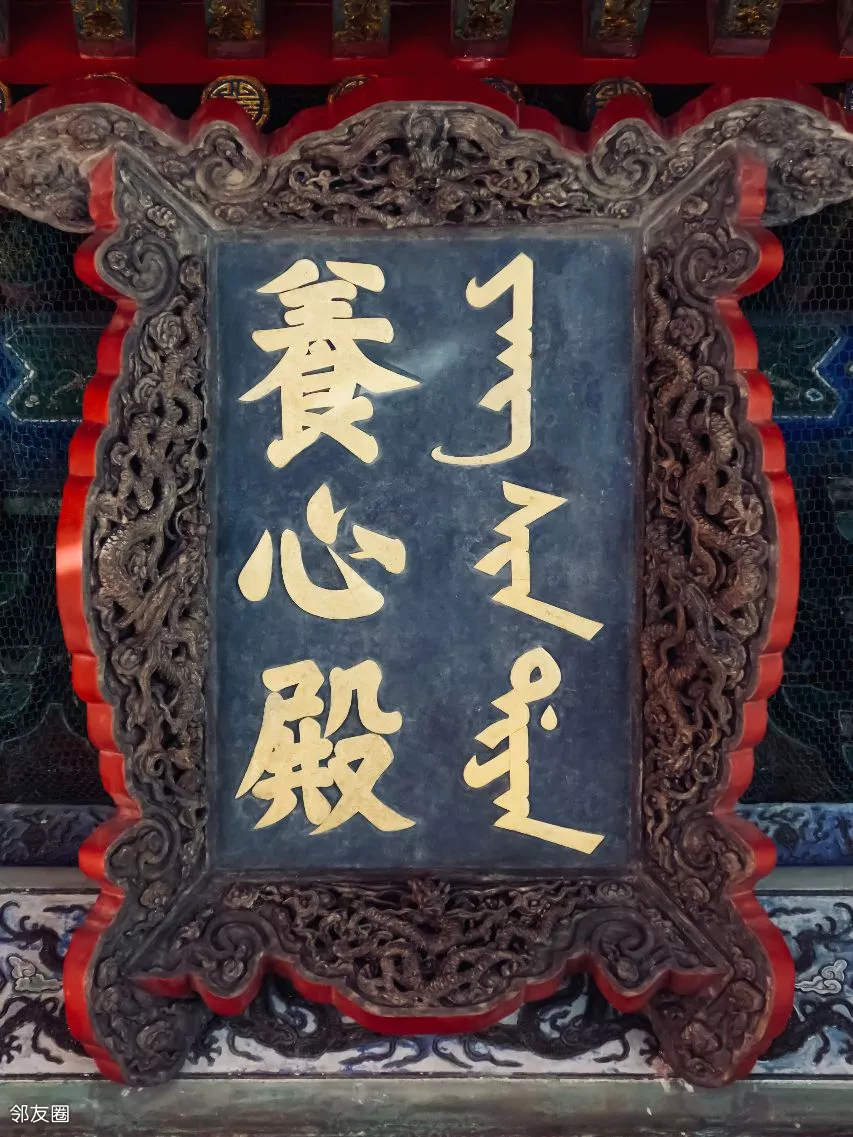 養心殿
ᠶᠠᠩ ᠰᡳᠨ ᡩᡳᠶᠠᠨ
邻友圈